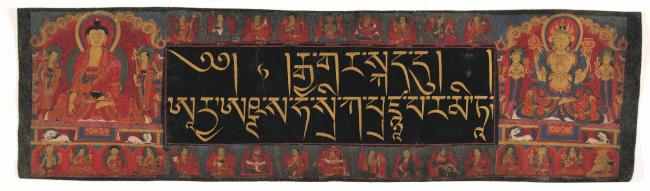 ༄༅། ། །རྒྱ་གར་སྐད་དུ། །
ཨཱརྱ་ཨཥྚ་ས་ཧ་སྲི་ཀ་པྲཛྙཱ་པཱ་ར་མི་ཏཱ